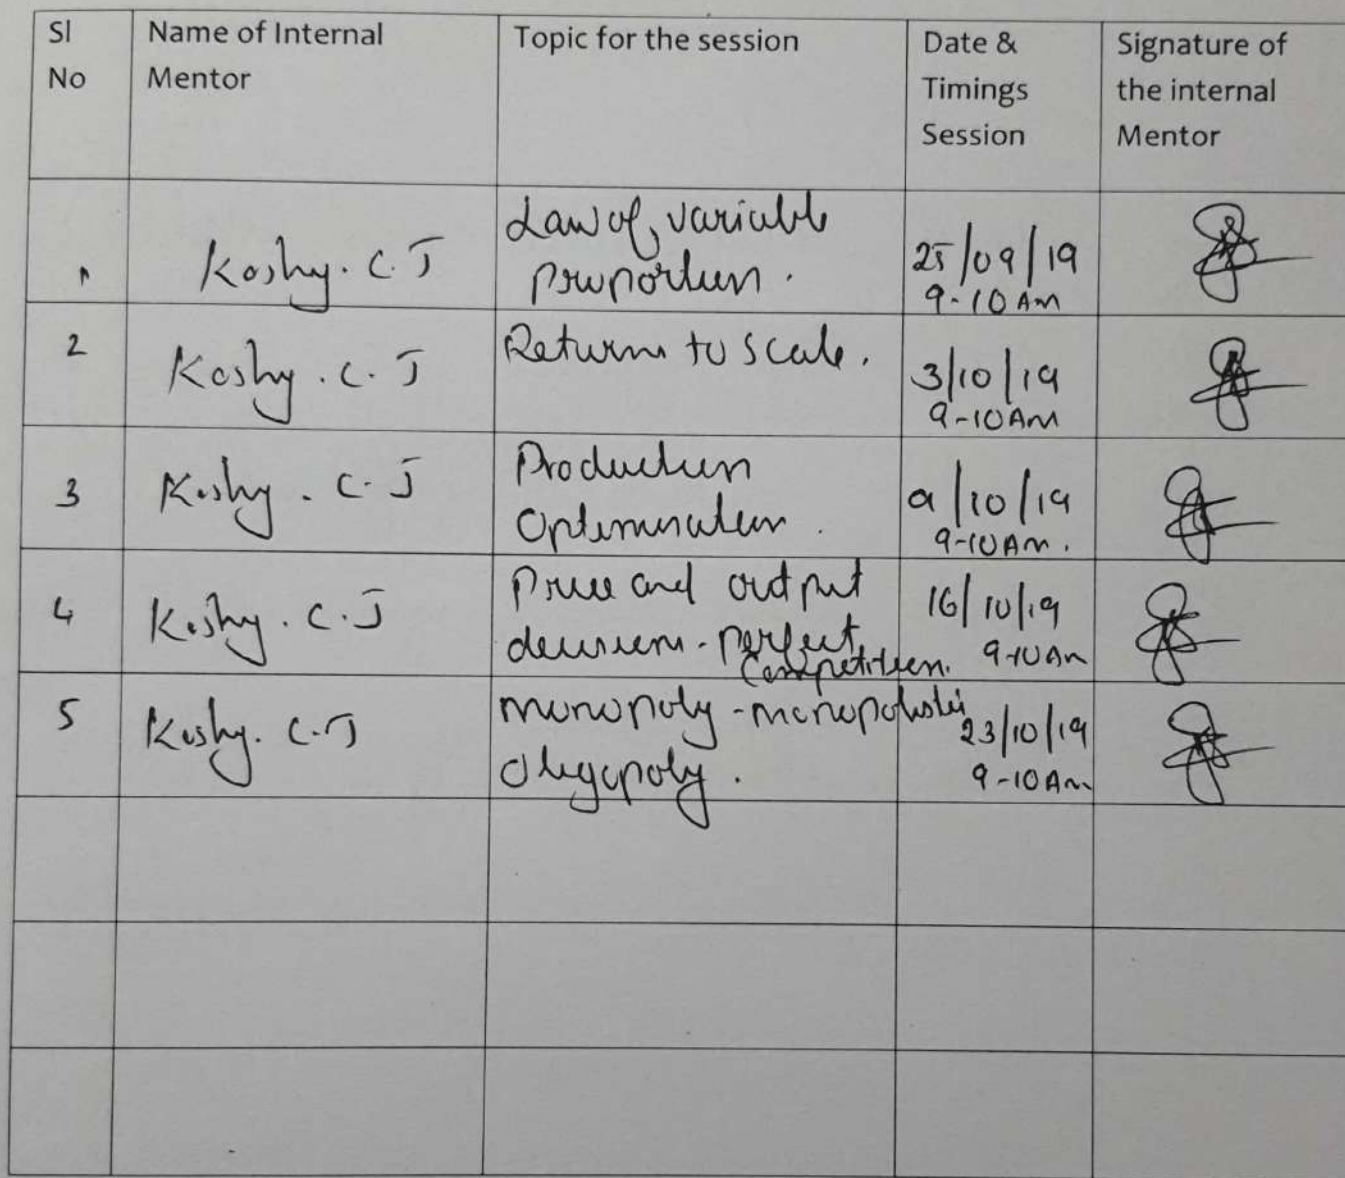 Sl No
Name of Internal Mentor
Topic for the session
Date & Timings Session
Signature of the internal Mentor
1
Koshy. C. J
Law of variable
proportion.
25/09/19
9-10 Am
2
Koshy. C. J
Returns to scale.
3/10/19
9-10 Am
3
Koshy. C. J
Production
Optimisation.
9/10/19
9-10 Am.
4
Koshy. C. J
Price and output
decisions - perfect
Competition.
16/10/19
9-10 Am
5
Koshy. C. J
monopoly - monopolistic
Oligopoly.
23/10/19
9-10 Am